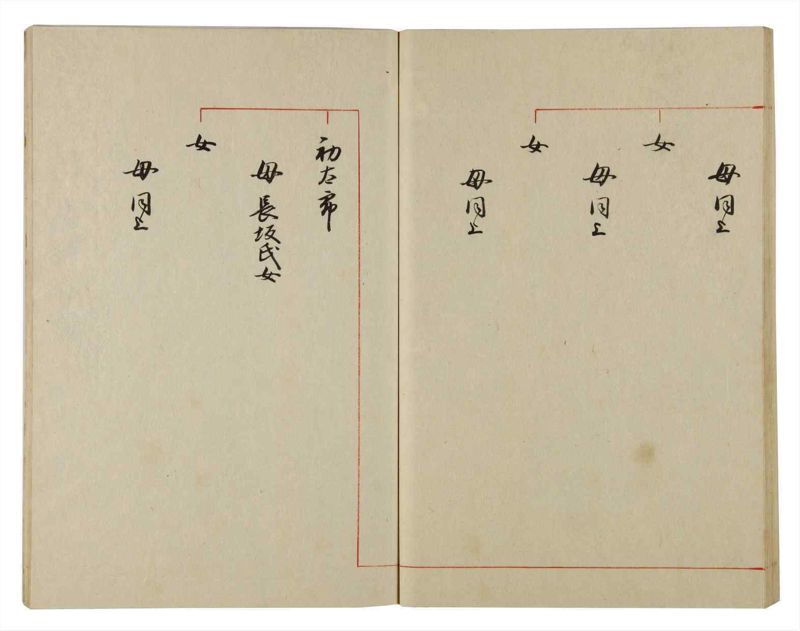 母同上
女
母同上
女
母同上
初太郎
母長坂氏女
女
母同上